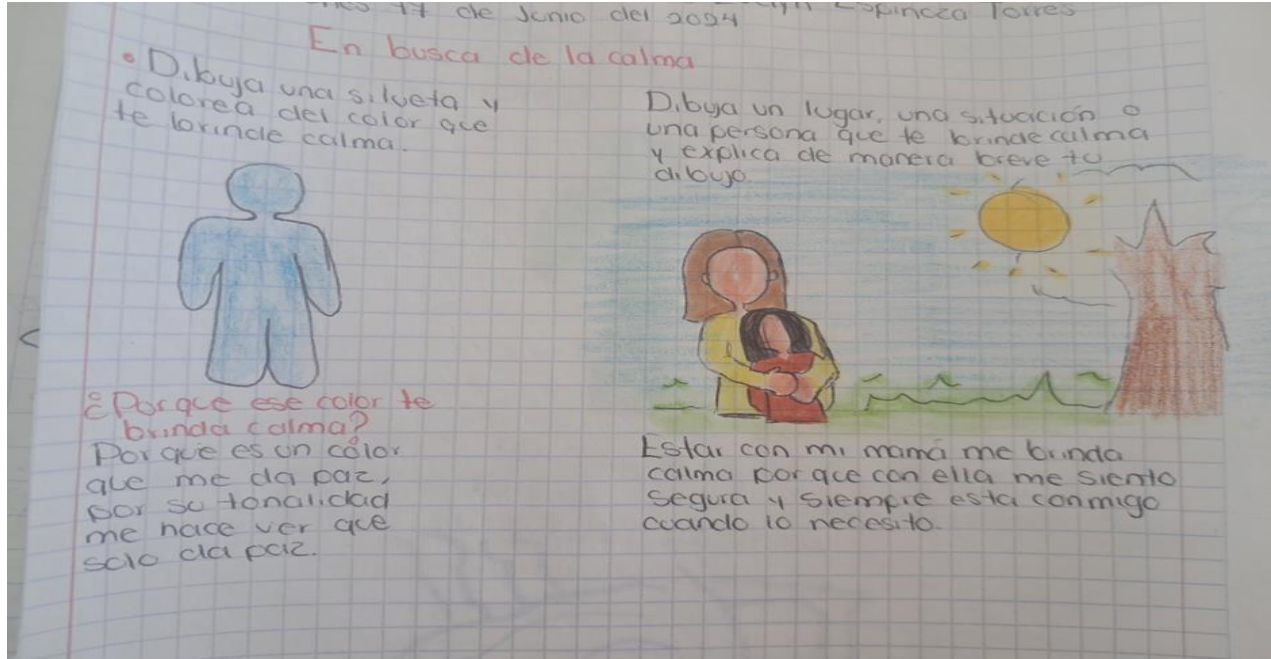 17 de Junio del 2024
Espinoza Torres
En busca de la calma
• Dibuja una silueta y
colorea del color que
te brinde calma.
¿Porque ese color te
brinda calma?
Porque es un color
que me da paz,
por su tonalidad
me hace ver que
solo da paz.
Dibuja un lugar, una situación o
una persona que te brinde calma
y explica de manera breve tu
dibujo.
Estar con mi mamá me brinda
calma porque con ella me siento
segura y siempre esta conmigo
cuando lo necesito.